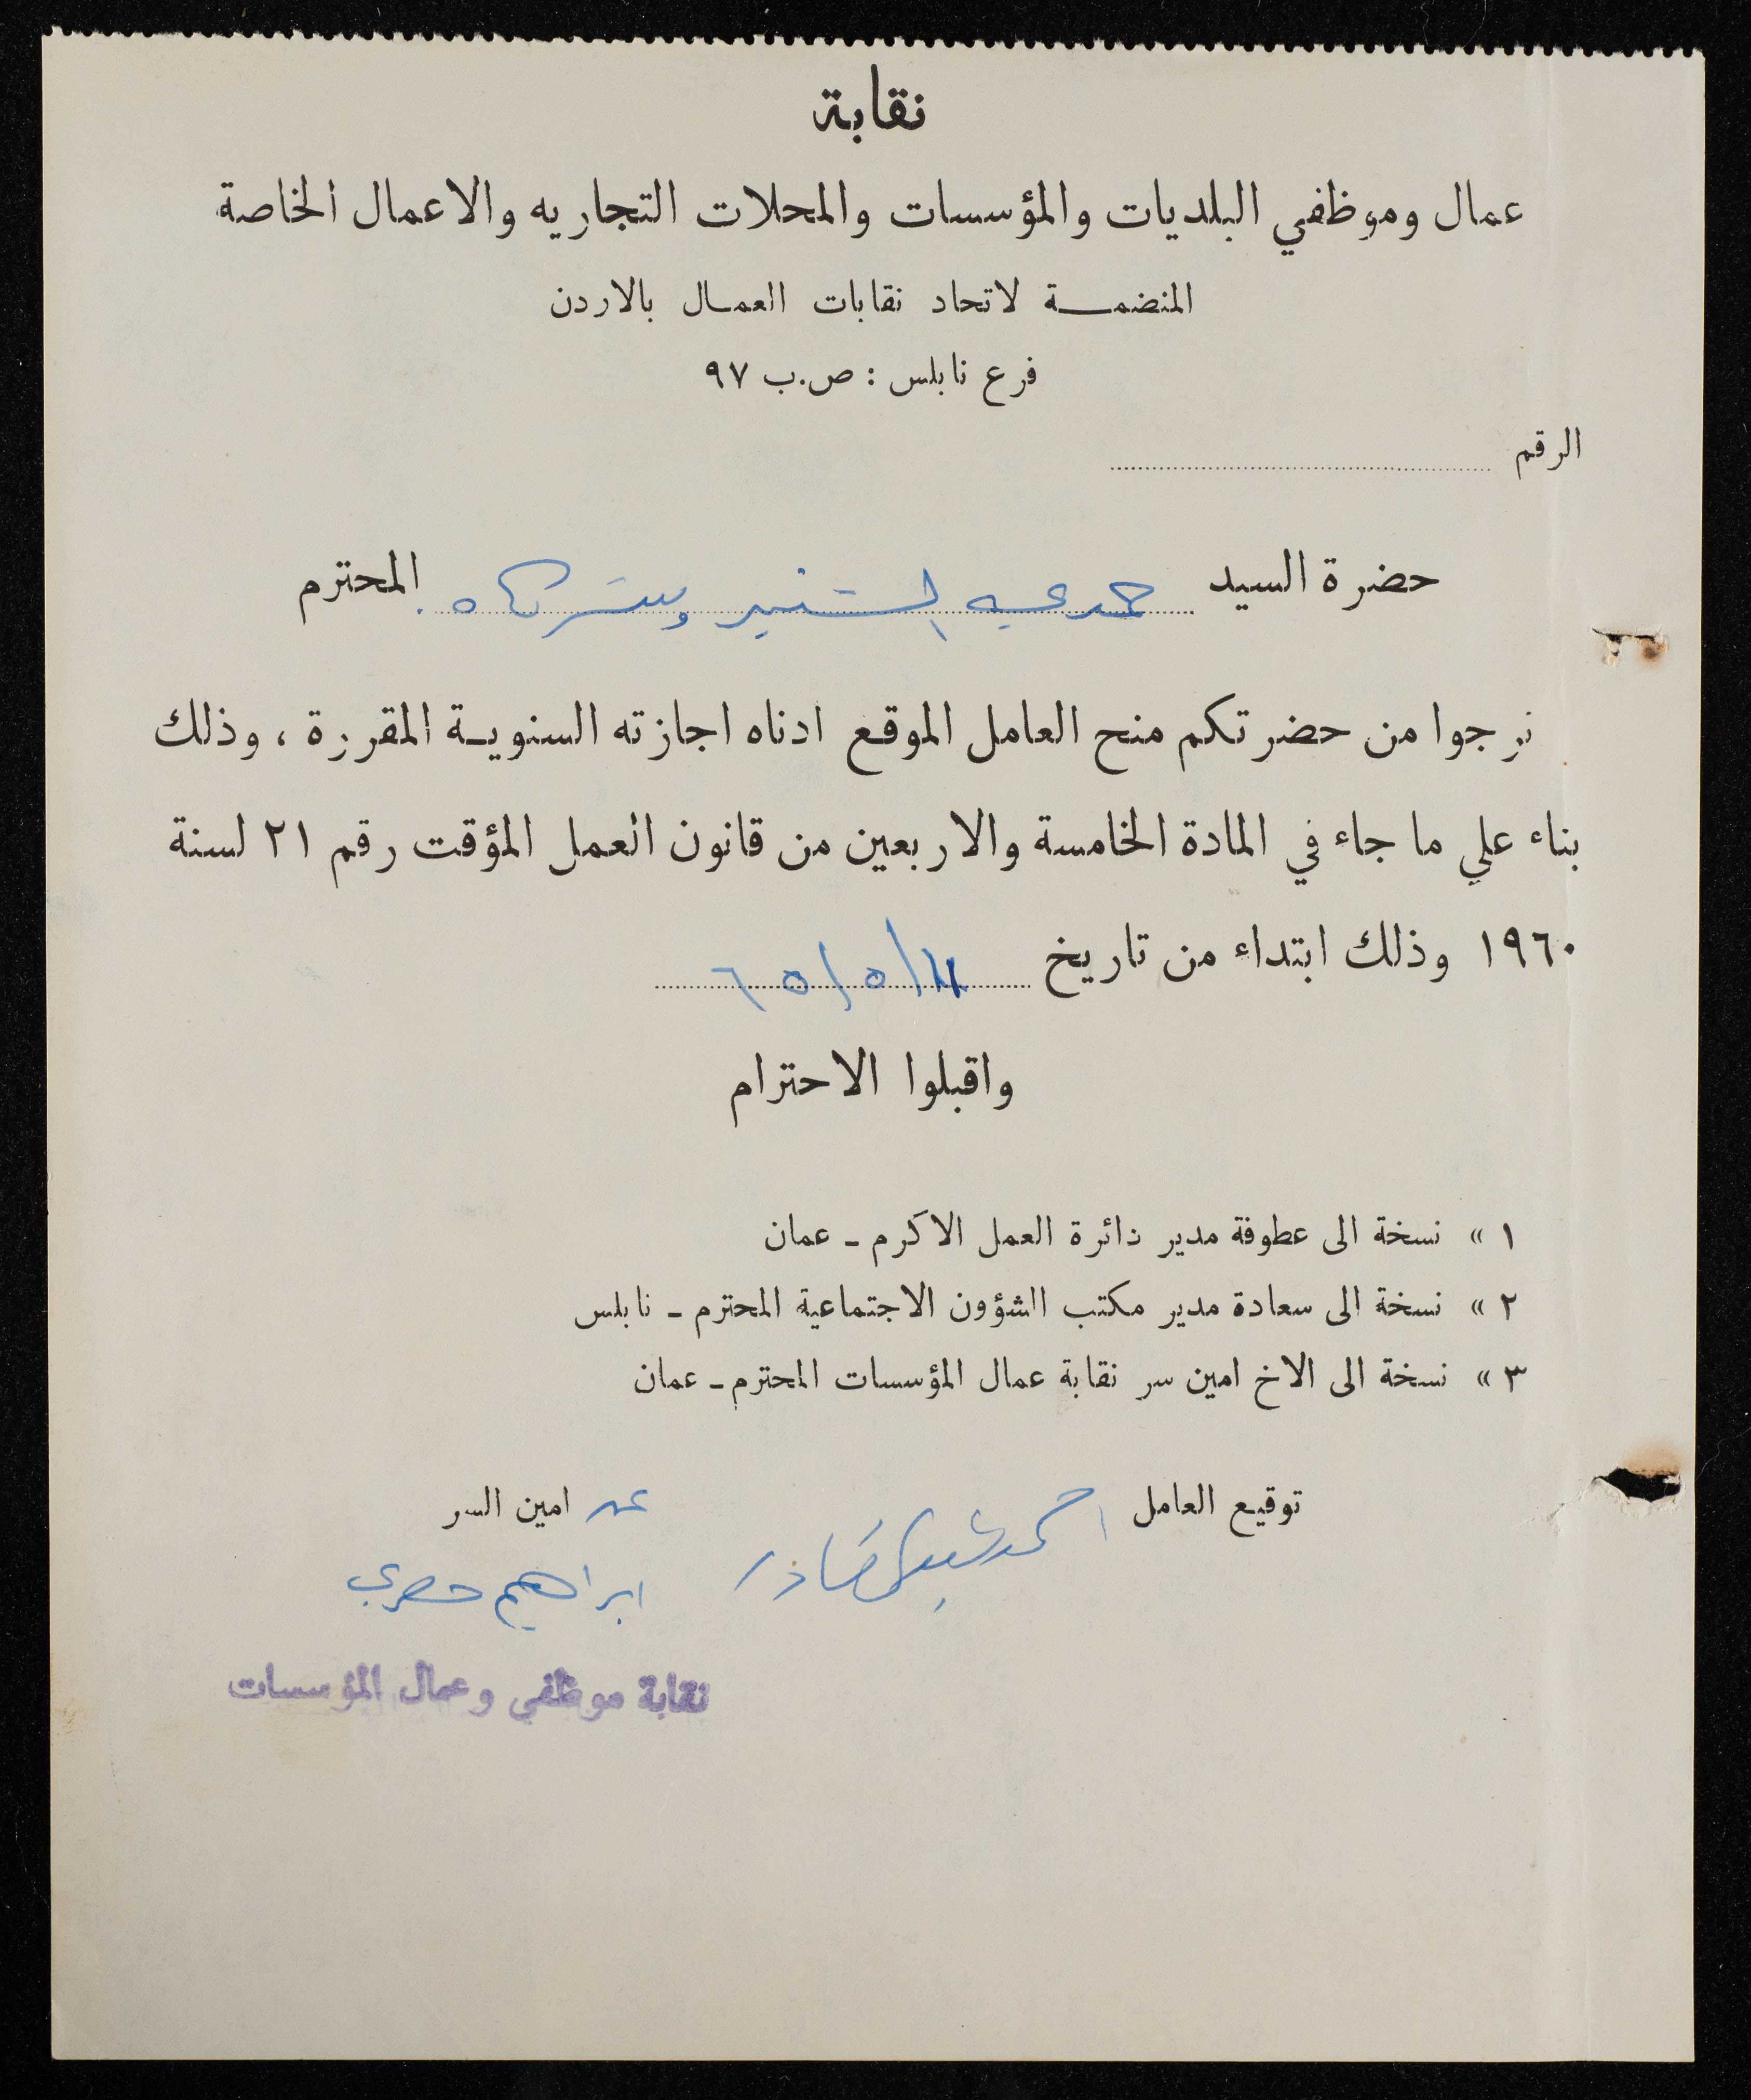 نقابة
عمال وموظفي البلديات والمؤسسات والمحلات التجاريه والاعمال الخاصة
المنضمـة لاتحاد نقابات العمـال بالاردن
فرع نابلس : ص.ب ٩٧
الرقم
حضرة السيد حمدي وشركاه المحترم
نرجوا من حضرتكم منح العامل الموقع ادناه اجازته السنويـة المقررة ، وذلك
بناء على ما جاء في المادة الخامسة والاربعين من قانون العمل المؤقت رقم ٢١ لسنة
١٩٦٠ وذلك ابتداء من تاريخ
واقبلوا الاحترام
١ » نسخة الى عطوفة مدير دائرة العمل الاكرم ـ عمان
٢ » نسخة الى سعادة مدير مكتب الشؤون الاجتماعية المحترم ـ نابلس
٣ » نسخة الى الاخ امين سر نقابة عمال المؤسسات المحترم ـ عمان
توقيع العامل احمد
عن امين السر
ابراهيم
نقابة موظفي وعمال المؤسسات